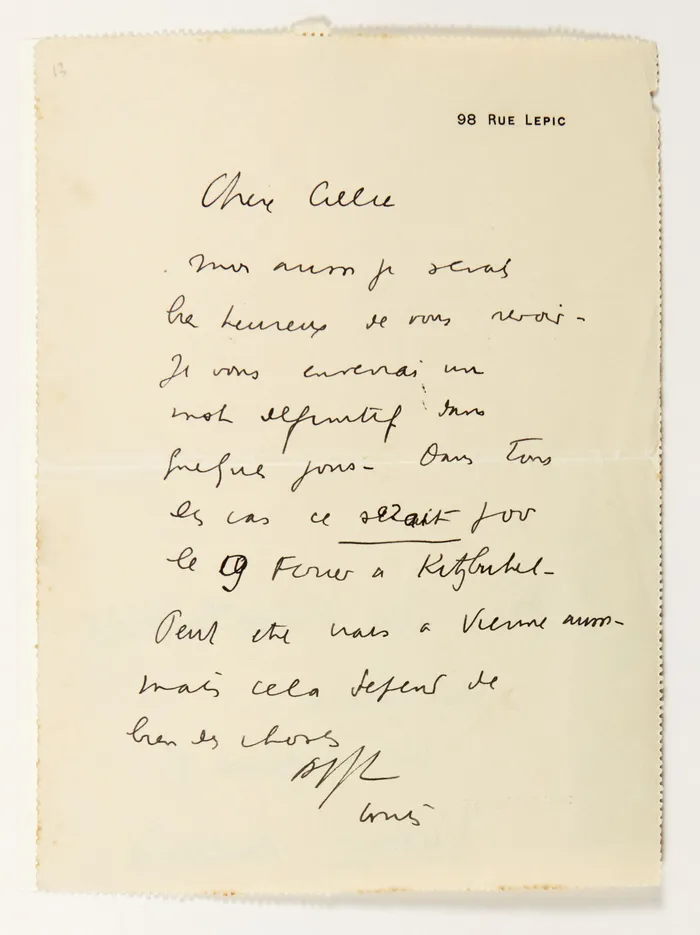 13
98 RUE LEPIC
Chere Cillie
moi aussi je serais
bien heureux de vous revoir -
Je vous enverrai un
mot definitif dans
quelques jours - Dans tous
les cas ce serait pour
le 9 Fevrier a Kitzbuhel -
Peut etre irais a Vienne aussi -
mais cela depend de
bien des choses
Louis